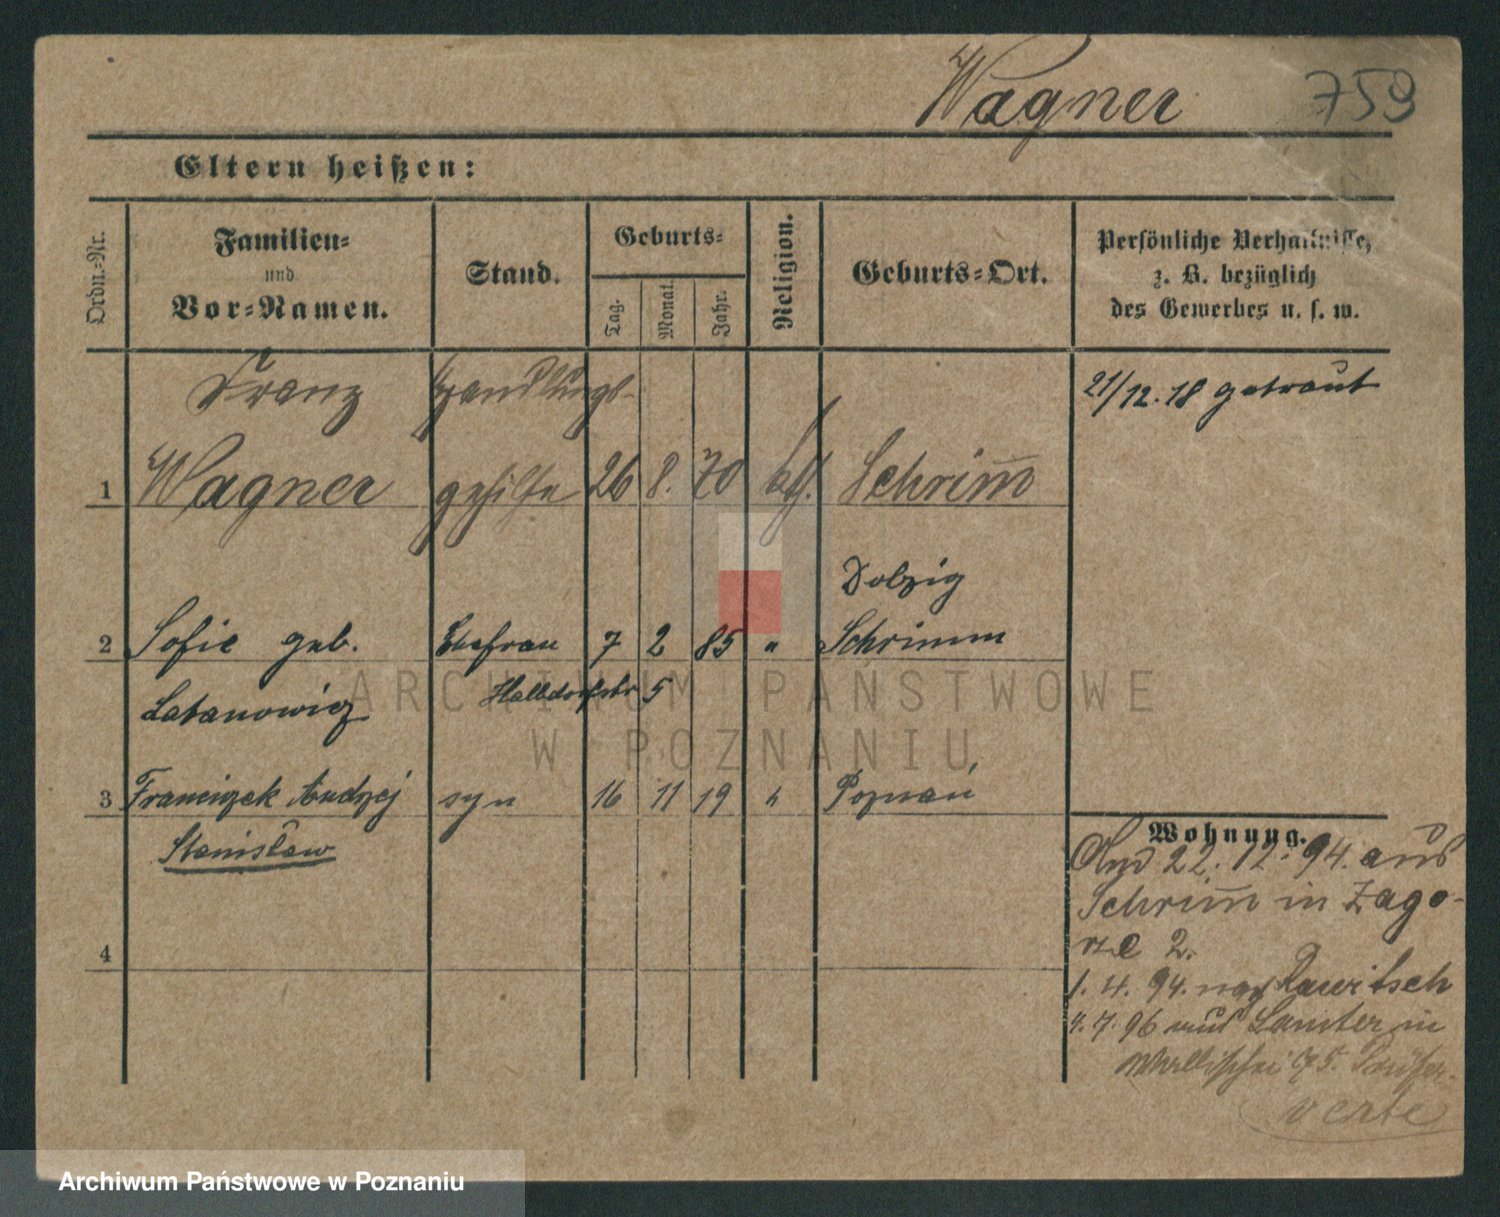 Wagner 759
Eltern heißen:
Ordn.-Nr.
Familien-
und
Vor-Namen.
Stand.
Geburts-
Tag.
Monat.
Jahr.
Religion.
Geburts-Ort.
Persönliche Verhältnisse,
z. B. bezüglich
des Gewerbes u. s. w.
Franz Handlungs-
21/12.18 getraut
1 Wagner gehilfe 26 8. 70 kath. Schrim̅
Dolzig
2 Sofie geb. Ehefrau 7 2 85 " Schrimm
Latanowicz Halbdorfstr 5
3 Franciszek Andrzej syn 16 11 19 " Poznań
Stanisław
Wohnung.
22. 12. 94. aus
Schrim̅ in Zago-
rze 2.
4
1. 4. 94. nach Rawitsch
4. 7. 96 aus in
Wallischei 75.
verte
ARCHIWUM PAŃSTWOWE
W POZNANIU
Archiwum Państwowe w Poznaniu